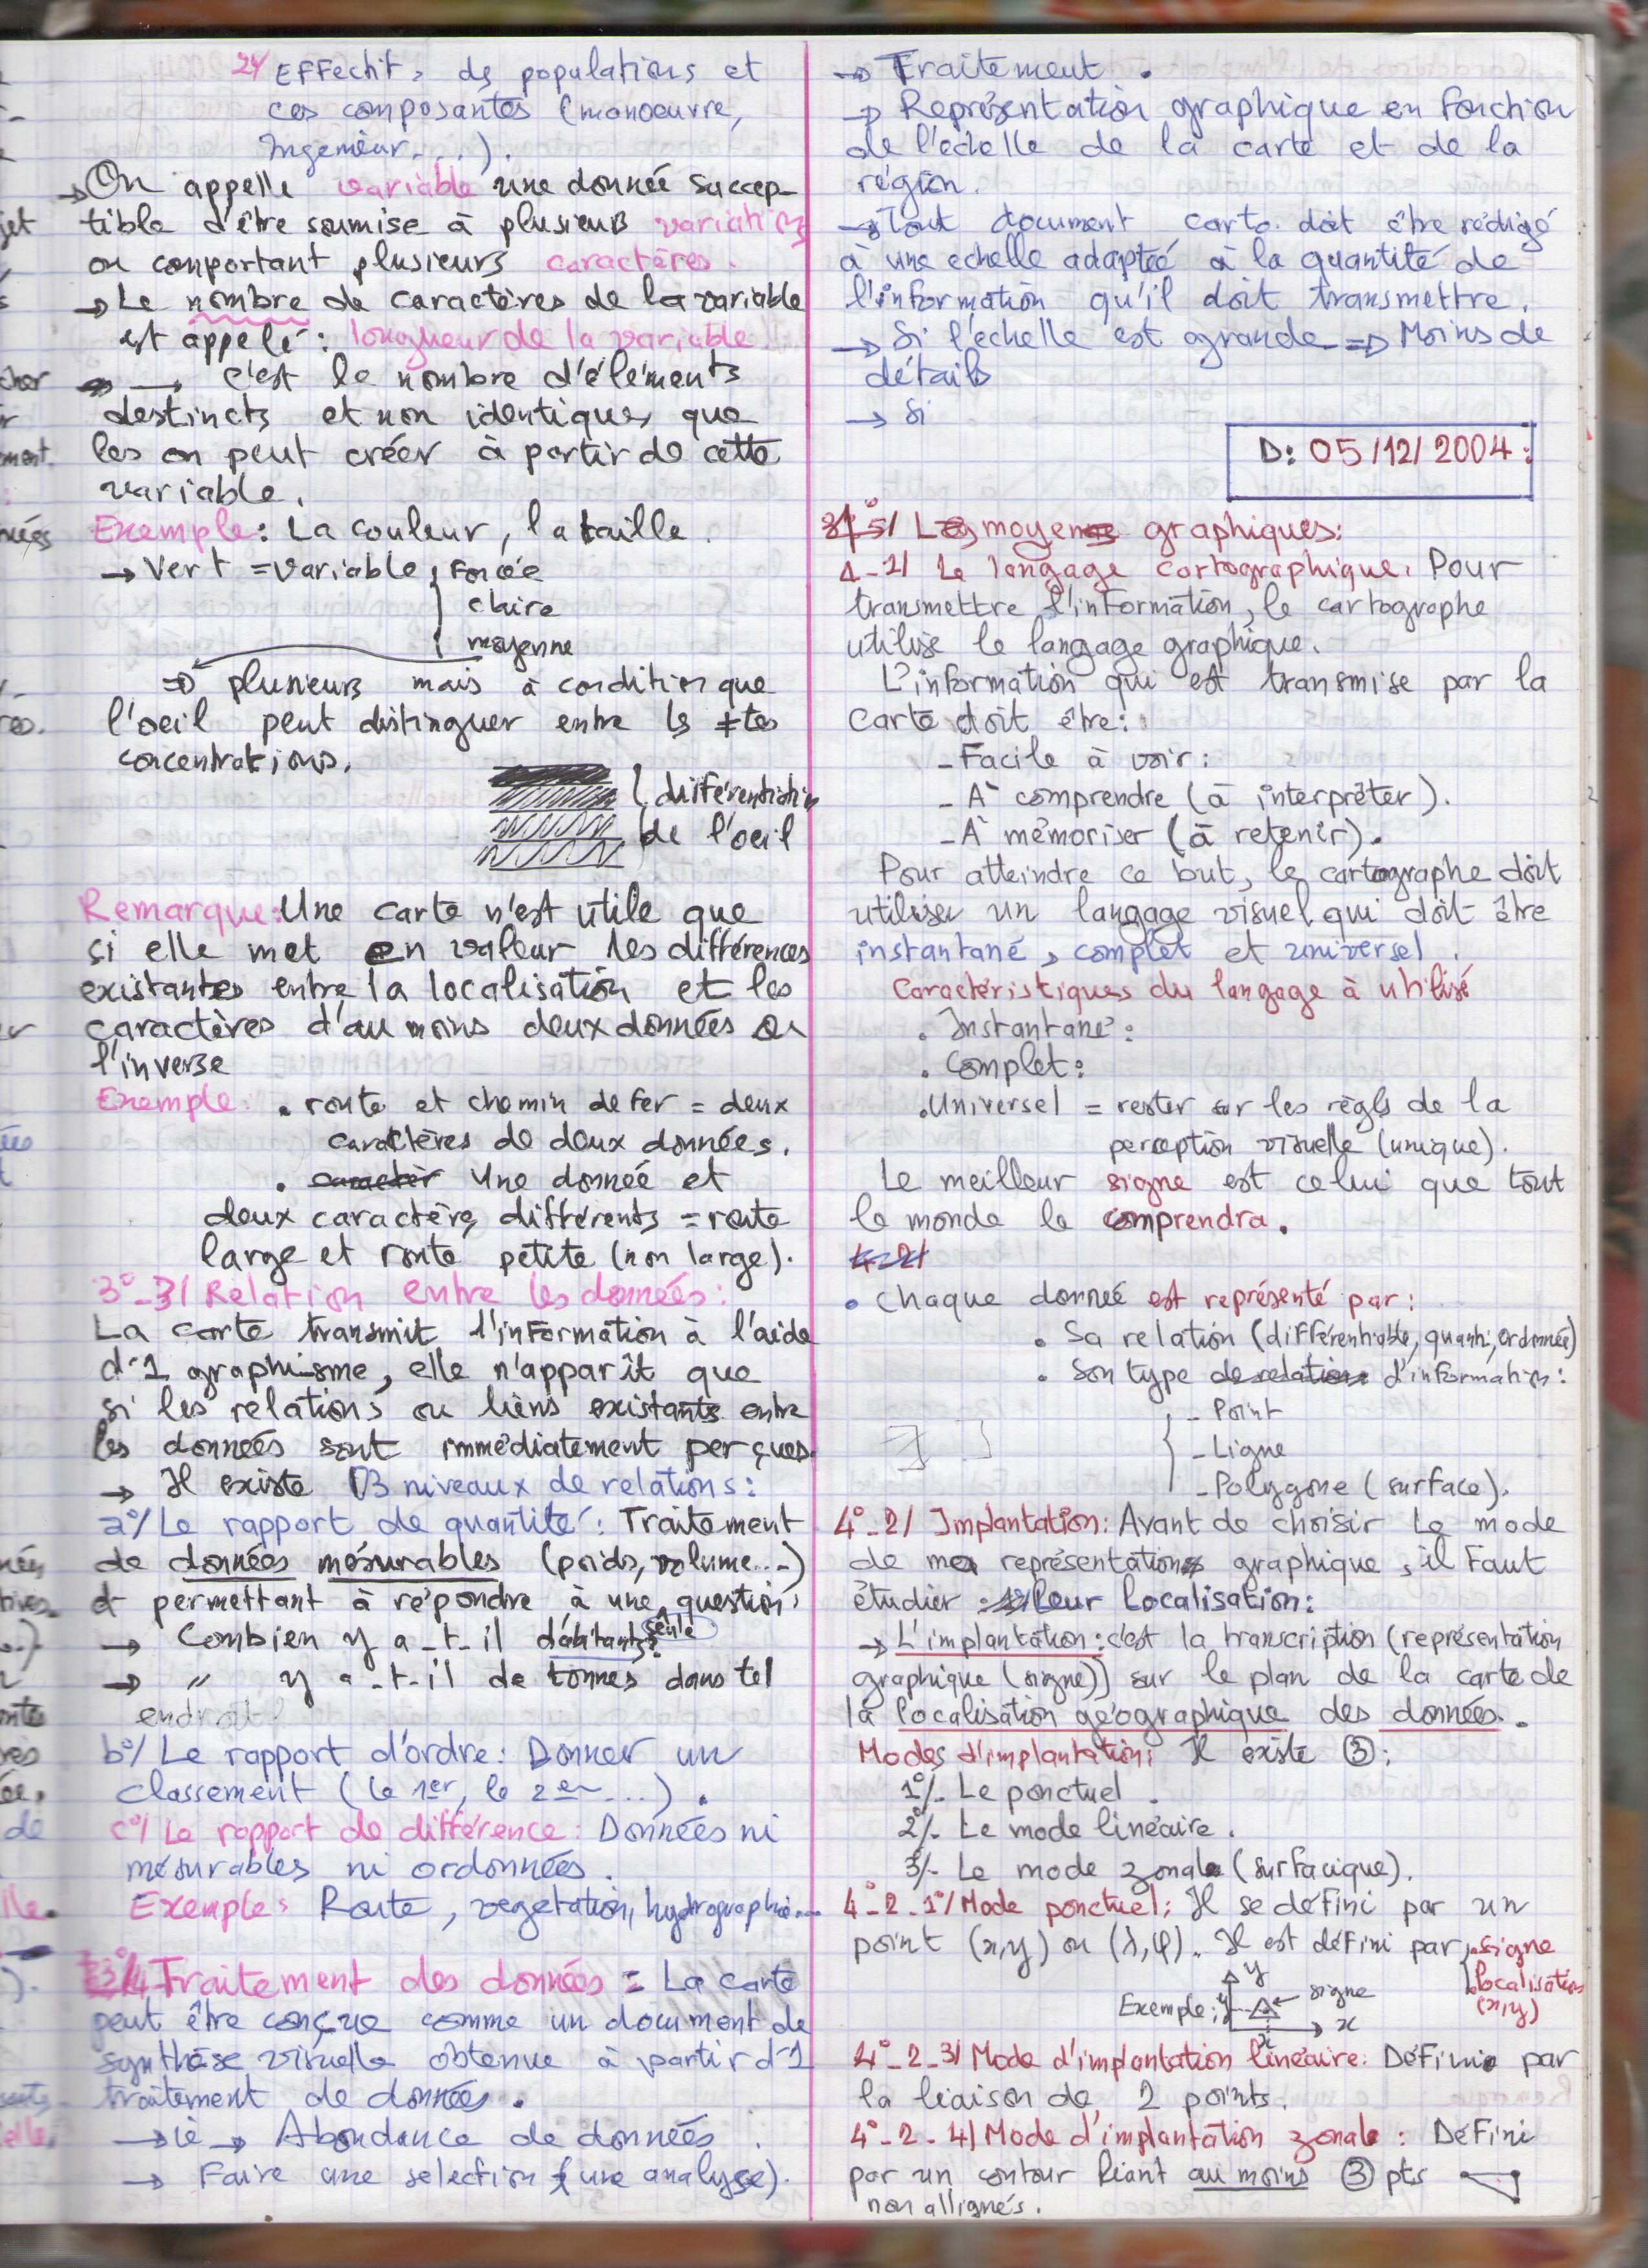 2°/ Effectifs des populations et
ces composantes (manoeuvre,
Ingenieur....).
→ On appelle variable une donnée succep-
tible d'être soumise à plusieurs variations
ou comportant plusieurs caractères.
→ Le nombre de caractères de la variable
est appelé : longueur de la variable.
→ c'est le nombre d'éléments
destincts et non identiques que
les on peut créer à partir de cette
variable.
Exemple : La couleur, la taille.
→ Vert = variable { Forcée
claire
moyenne
⇒ plusieurs mais à condition que
l'oeil peut distinguer entre ls ≠tes
concentrations.
différentiation
de l'oeil
Remarque : Une carte n'est utile que
si elle met en valeur les différences
existantes entre la localisation et les
caractères d'au moins deux données ou
l'inverse
Exemple : • route et chemin de fer = deux
caractères de deux données.
• Une donnée et
deux caractères différents = route
large et route petite (non large).
3°-3/ Relation entre les données :
La carte transmit l'information à l'aide
d'1 graphisme, elle n'apparît que
si les relations ou liens existants entre
les données sont immédiatement perçues.
→ Il existe 3 niveaux de relations :
a°/ Le rapport de quantité : Traitement
de données mésurables (poids, volume...)
et permettant à répondre à une seule question
→ Combien y a-t-il d'abitants?
→ " y a-t-il de tonnes dans tel
endroit
b°/ Le rapport d'ordre : Donner un
classement (le 1er, le 2em...).
c°/ Le rapport de différence : Données ni
mésurables ni ordonnées.
Exemple : Route, vegetation, hydrographie...
4 Traitement des données = La carte
peut être conçue comme un document de
synthèse visuelle obtenue à partir d'1
traitement de données.
→ ie → Abondance de données.
→ Faire une selection (une analyse).
→ Traitement.
→ Représentation graphique en fonction
de l'échelle de la carte et de la
région.
→ Tout document carto. doit être rédigé
à une echelle adaptée à la quantité de
l'information qu'il doit transmettre.
→ Si l'échelle est grande ⇒ Moins de
détails
→ Si
D: 05/12/2004:
Les moyens graphiques:
4-1/ Le langage cartographique. Pour
transmettre l'information, le cartographe
utilise le langage graphique.
L'information qui est transmise par la
carte doit être:
- Facile à voir:
- A comprendre (à interpréter).
- A mémoriser (à retenir).
Pour atteindre ce but, le cartographe doit
utiliser un langage visuel qui doit être
instantané, complet et universel.
Caractéristiques du langage à utilisé
• Instantané:
• Complet:
• Universel = rester sur les règls de la
perception visuelle (unique).
Le meilleur signe est celui que tout
le monde le comprendra.
4-2/
• Chaque donneé est représenté par :
• Sa relation (différentiable, quanti, ordonnée)
• Son type de relation d'information:
- Point
- Ligne
- Polygone (surface).
4°-2/ Implantation: Avant de choisir Le mode
de représentation graphique, il faut
étudier leur Localisation:
→ L'implantation: c'est la transcription (représentation
graphique (signe)) sur le plan de la carte de
la localisation géographique des données.
Modes d'implantation: Il existe 3:
1°/- Le ponctuel.
2°/- Le mode linéaire.
3/- Le mode zonale (surfacique).
4°-2-1°/ Mode ponctuel: Il se défini par un
point (x,y) ou (λ,φ). Il est défini par signe
localisation
(x,y)
Exemple: y y signe
x x
4°-2-3/ Mode d'implantation linéaire: Définie par
la liaison de 2 points.
4°-2-4/ Mode d'implantation zonale : Défini
par un contour liant au moins 3 pts
non allignés.